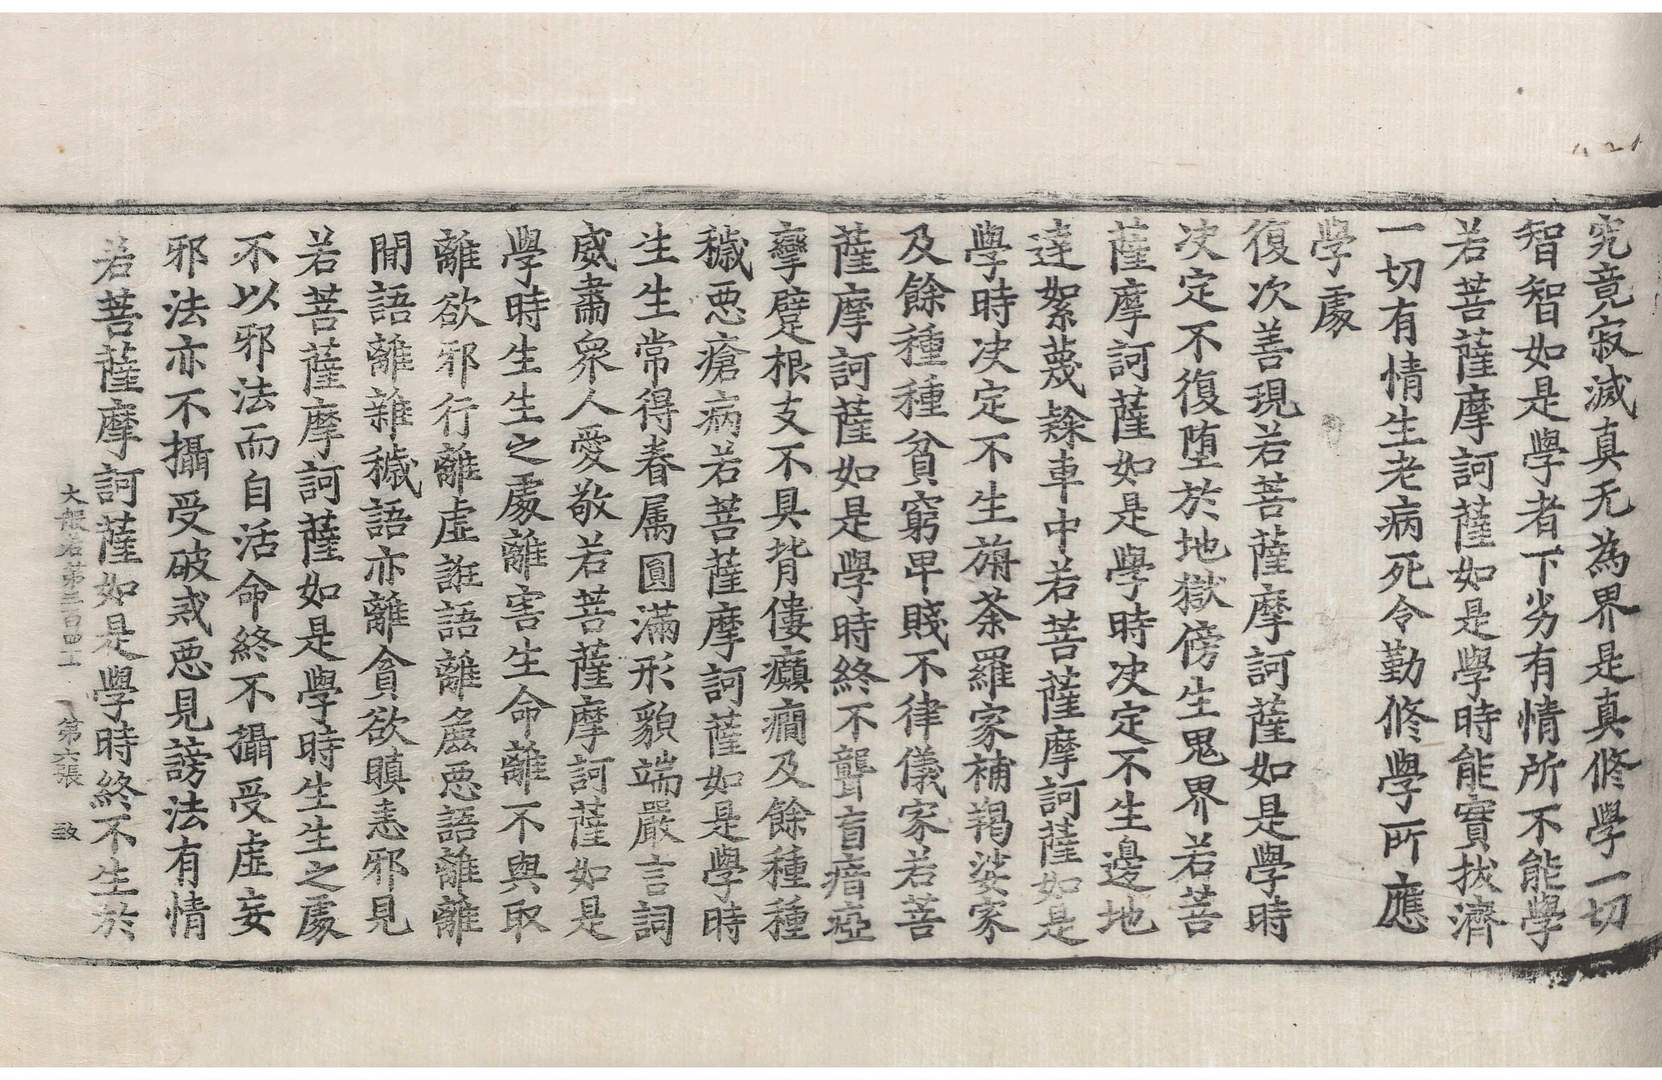 究竟寂滅真无為界是真修學一切
智智如是學者下劣有情所不能學
若菩薩摩訶薩如是學時能實拔濟
一切有情生老病死令勤修學所應
學處
復次善現若菩薩摩訶薩如是學時
決定不復墮於地獄傍生鬼界若菩
薩摩訶薩如是學時決定不生邊地
達絮蔑隸車中若菩薩摩訶薩如是
學時決定不生旃荼羅家補羯娑家
及餘種種貧窮卑賤不律儀家若菩
薩摩訶薩如是學時終不聾盲瘖瘂
攣躄根支不具背僂癲癇及餘種種
穢惡瘡病若菩薩摩訶薩如是學時
生生常得眷属圓滿形貌端嚴言詞
威肅衆人愛敬若菩薩摩訶薩如是
學時生生之處離害生命離不與取
離欲邪行離虛誑語離麁惡語離離
間語離雜穢語亦離貪欲瞋恚邪見
若菩薩摩訶薩如是學時生生之處
不以邪法而自活命終不攝受虛妄
邪法亦不攝受破戒惡見謗法有情
若菩薩摩訶薩如是學時終不生於
大般若第三百四 第六張